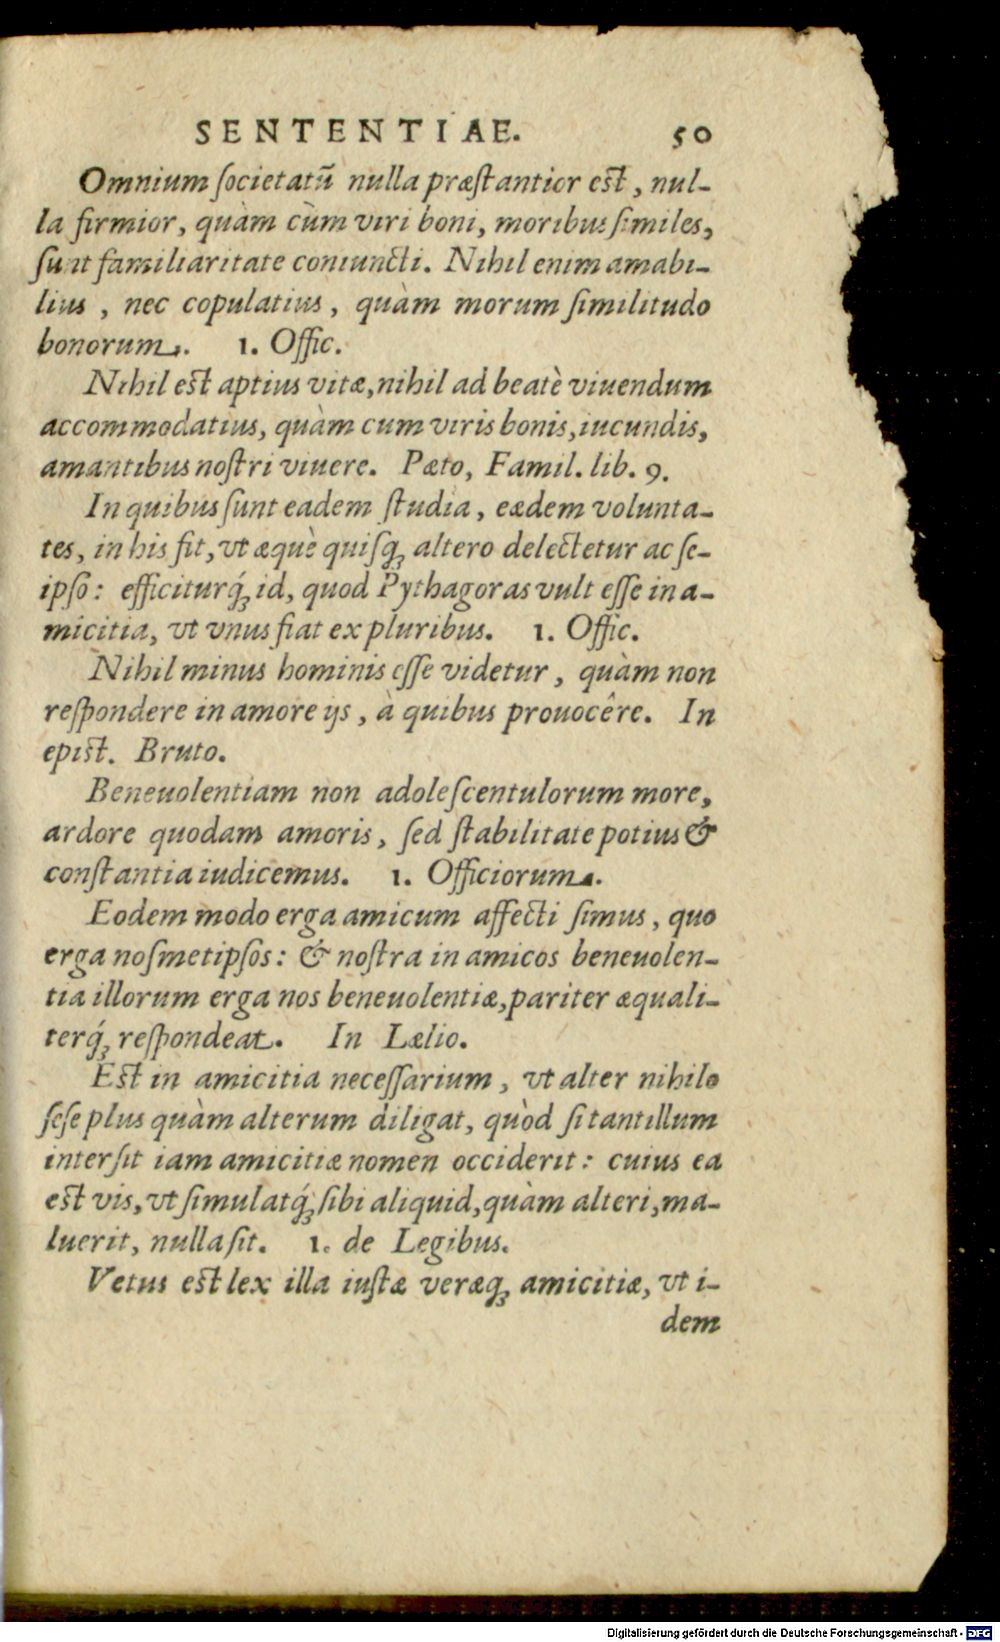 SENTENTIAE. 50
Omnium ſocietatū nulla præſtantior eſt, nul-
la firmior, quàm cùm viri boni, moribus ſimiles,
ſunt familiaritate coniuncti. Nihil enim amabi-
lius, nec copulatius, quàm morum ſimilitudo
bonorum. 1. Offic.
Nihil eſt aptius vitæ, nihil ad beatè viuendum
accommodatius, quàm cum viris bonis, iucundis,
amantibus noſtri viuere. Pæto, Famil. lib. 9.
In quibus ſunt eadem ſtudia, eædem volunta-
tes, in his fit, vt æquè quiſq; altero delectetur ac ſe-
ipſo: efficiturq́; id, quod Pythagoras vult eſſe in a-
micitia, vt vnus fiat ex pluribus. 1. Offic.
Nihil minus hominis eſſe videtur, quàm non
reſpondere in amore ijs, à quibus prouocêre. In
epiſt. Bruto.
Beneuolentiam non adoleſcentulorum more,
ardore quodam amoris, ſed ſtabilitate potius &
conſtantia iudicemus. 1. Officiorum.
Eodem modo erga amicum affecti ſimus, quo
erga noſmetipſos: & noſtra in amicos beneuolen-
tia illorum erga nos beneuolentiæ, pariter æquali-
terq́; reſpondeat. In Lælio.
Eſt in amicitia neceſſarium, vt alter nihilo
ſeſe plus quàm alterum diligat, quòd ſi tantillum
interſit iam amicitiæ nomen occiderit: cuius ea
eſt vis, vt ſimulatq́; ſibi aliquid, quàm alteri, ma-
luerit, nulla ſit. 1. de Legibus.
Vetus eſt lex illa iuſtæ veræq; amicitiæ, vt i-
dem
Digitalisierung gefördert durch die Deutsche Forschungsgemeinschaft - DFG